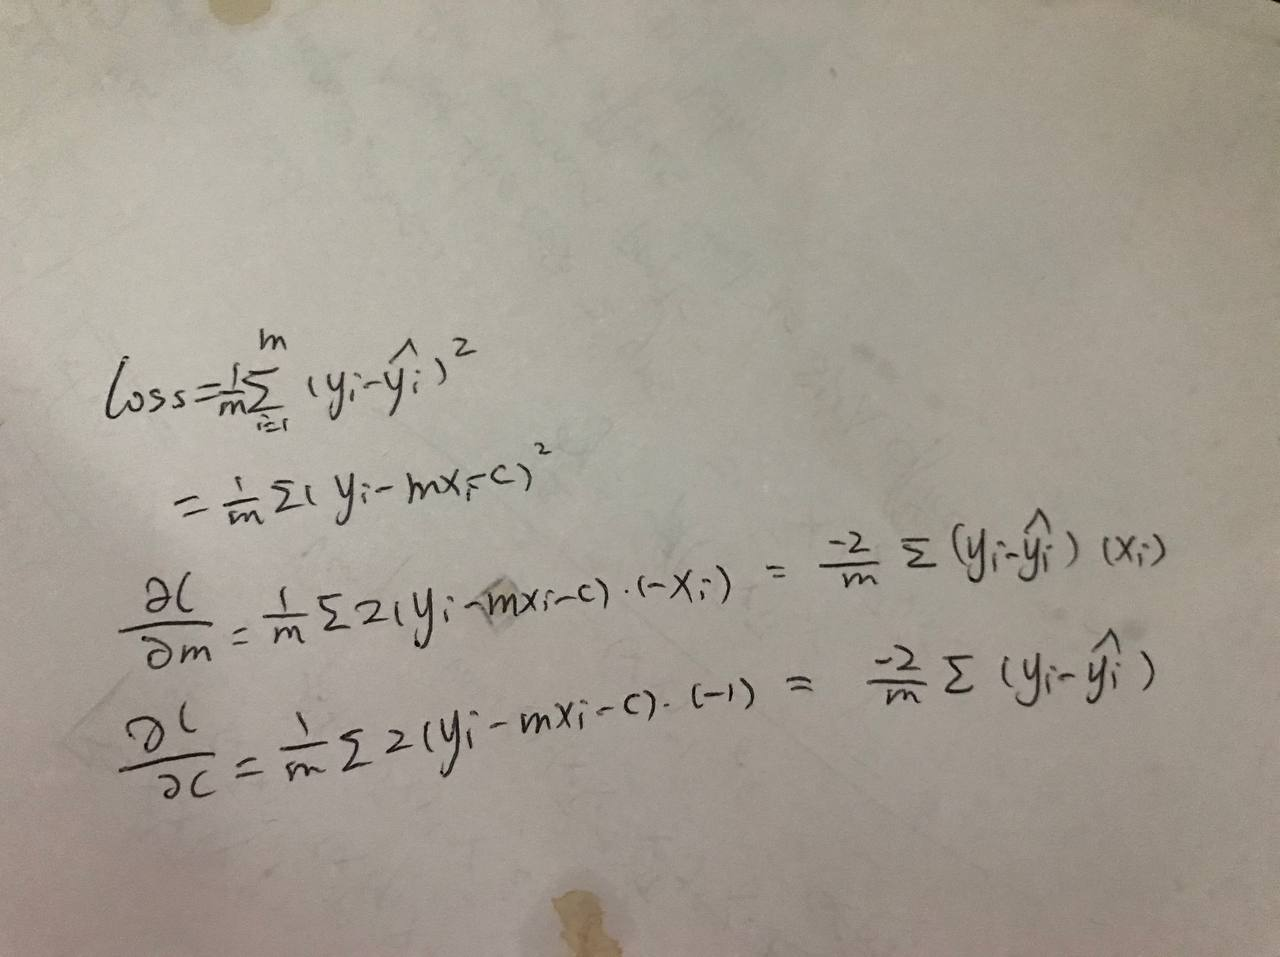 Loss = 1/m Σ_{i=1}^{m} (yi - ŷi)²
= 1/m Σ (yi - mxi - c)²
∂L/∂m = 1/m Σ 2(yi - mxi - c) · (-xi) = -2/m Σ (yi - ŷi) (xi)
∂L/∂c = 1/m Σ 2(yi - mxi - c) · (-1) = -2/m Σ (yi - ŷi)